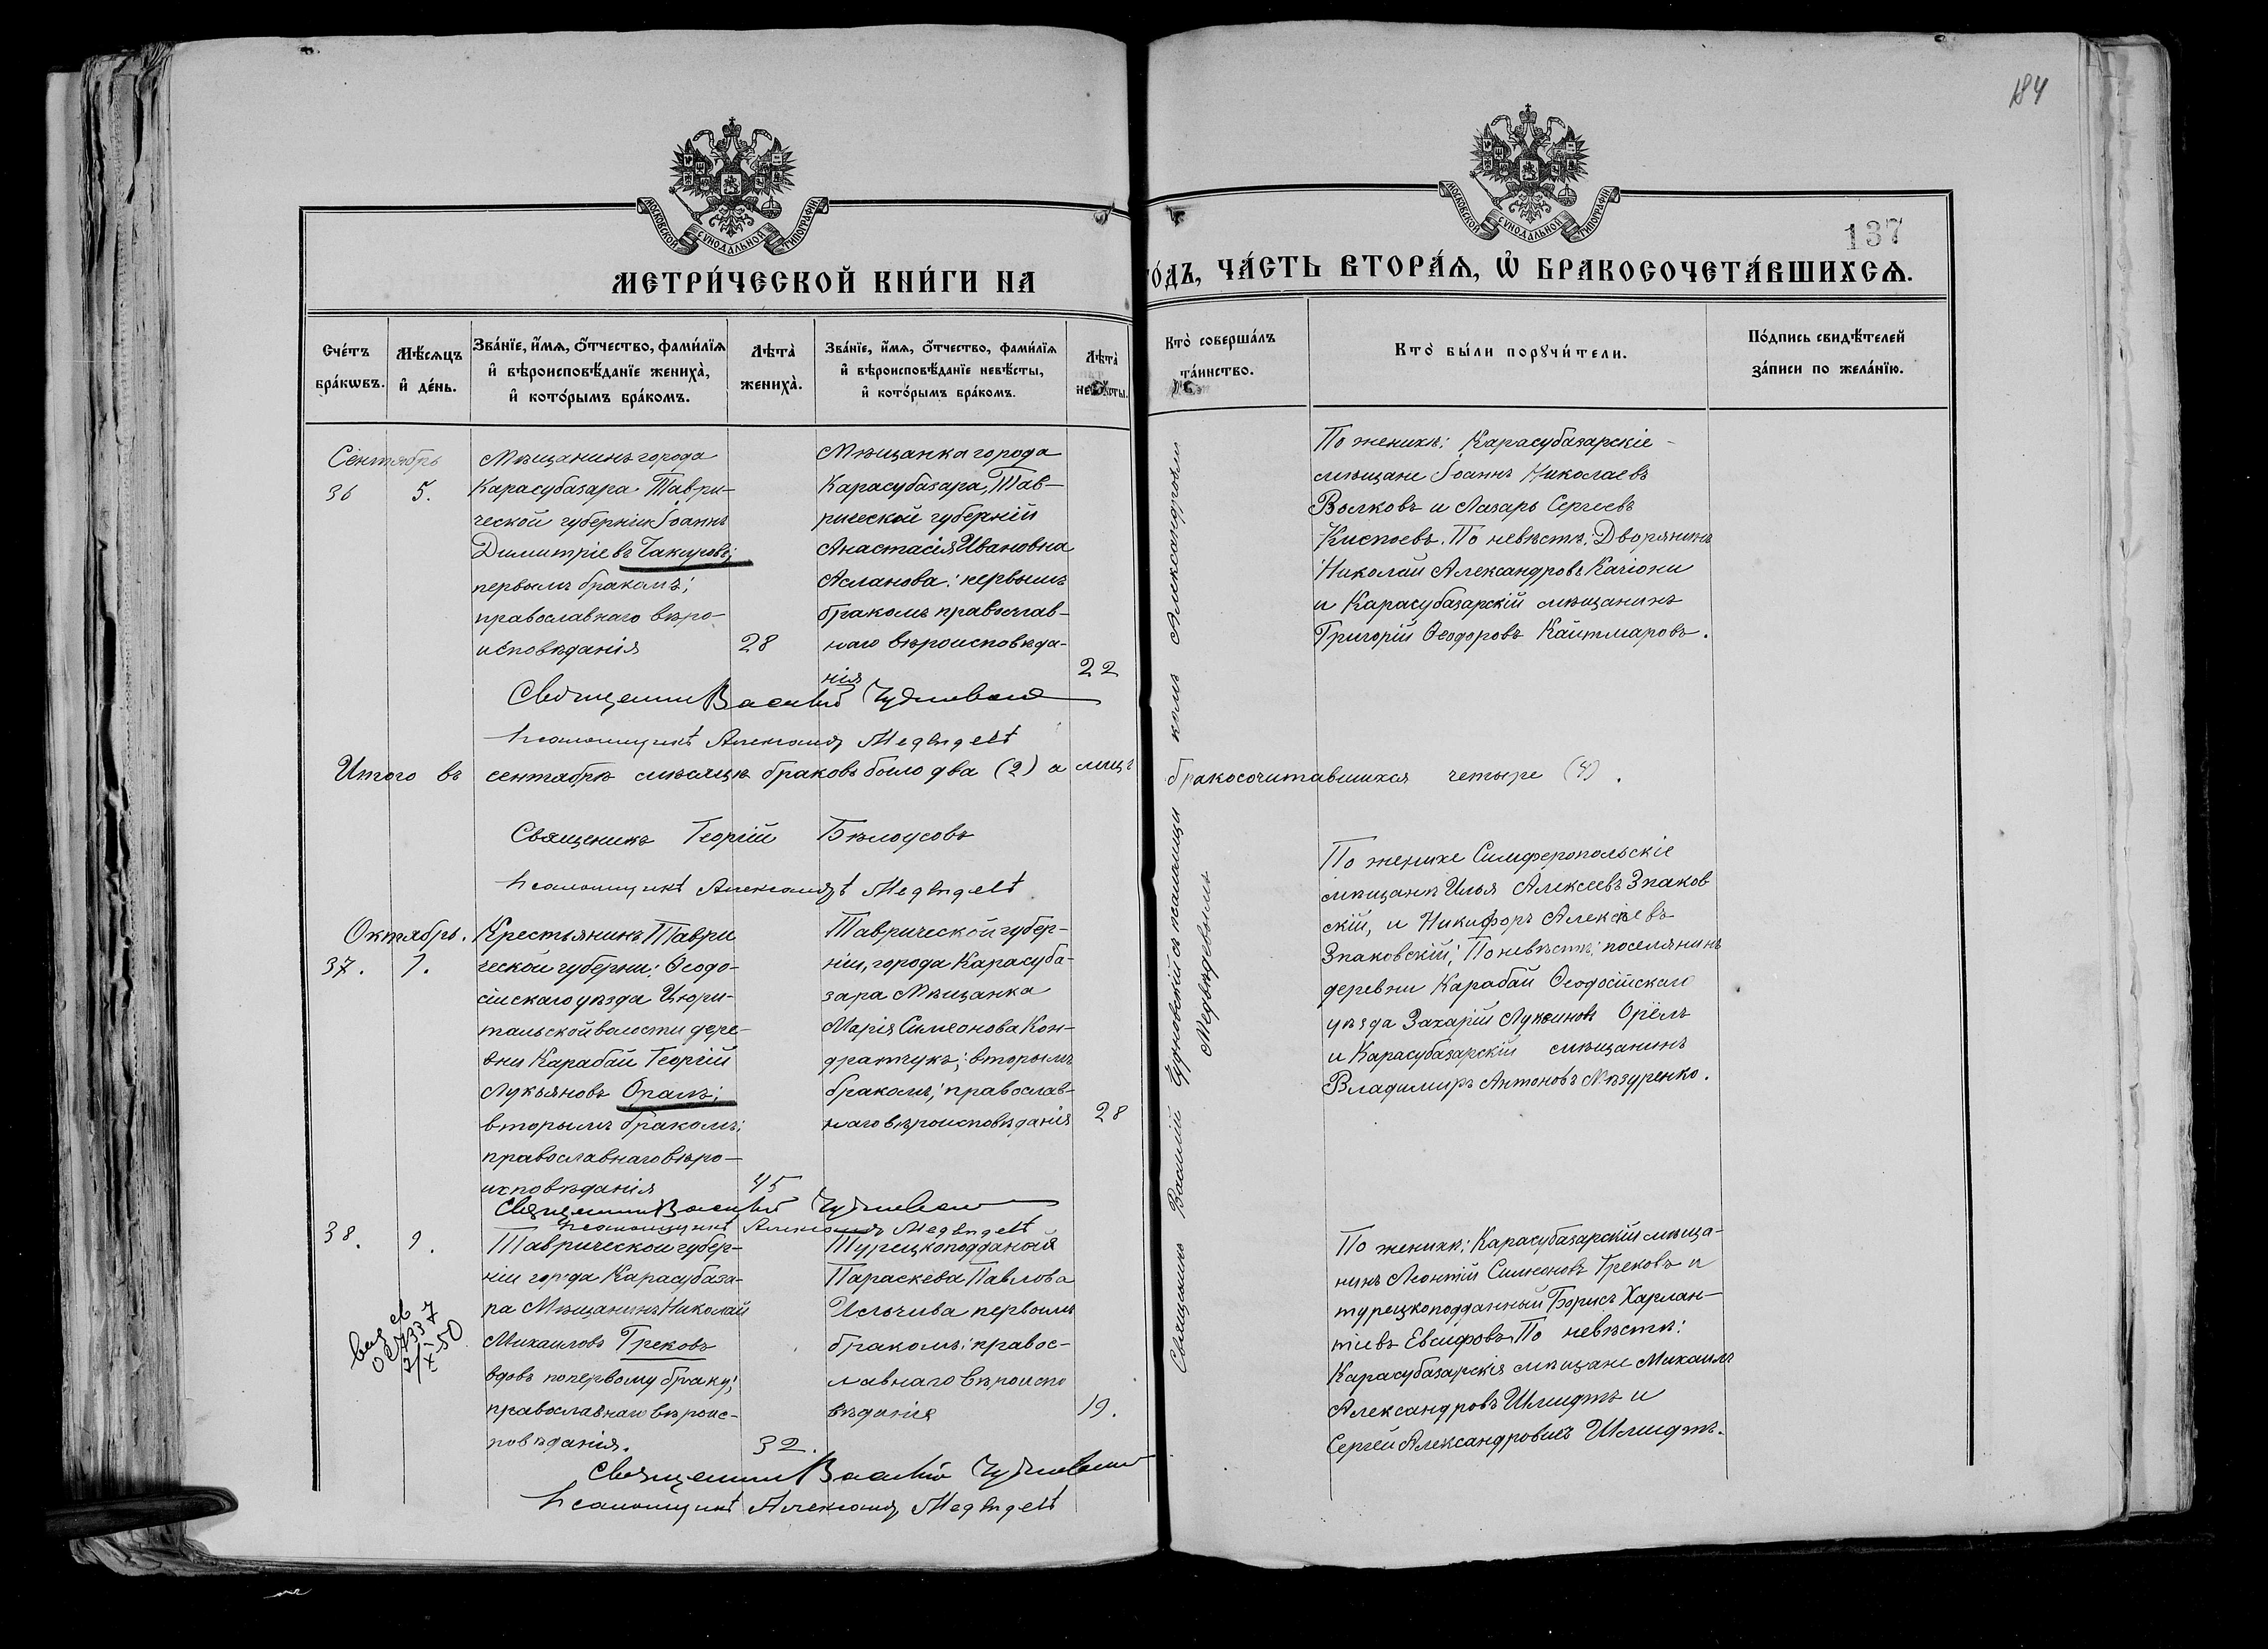 184
137
МОСКОВСКОЙ СУНОДАЛЬНОЙ ТИПОГРАФІИ
МОСКОВСКОЙ СУНОДАЛЬНОЙ ТИПОГРАФІИ
МЕТРИ́ЧЕСКОЙ КНИ́ГИ НА
ГО́ДЪ, ЧА́СТЬ ВТОРА́Ѧ, Ѽ БРАКОСОЧЕТА́ВШИХСѦ.
Сче́тъ бра́кѡвъ.
Мѣ́сяцъ и҆ де́нь.
Зва́нїе, и҆́мѧ, ѻ҆́тчество, фами́лїѧ
и҆ вѣроисповѣ́данїе жениха̀,
и҆ кото́рымъ бра́комъ.
Лѣта̀ жениха̀.
Зва́нїе, и҆́мѧ, ѻ҆́тчество, фами́лїѧ
и҆ вѣроисповѣ́данїе невѣ́сты,
и҆ кото́рымъ бра́комъ.
Лѣта̀ невѣ́сты.
Кто̀ соверша́лъ та́инство.
Кто̀ бы́ли порꙋчи́тели.
По́дпись свидѣ́телей
за́писи по жела́нїю.
Сентябрь
36
5.
Мѣщанинъ города
Карасубазара Таври-
ческой губерніи Іоаннъ
Димитріевъ Чакировъ;
первымъ бракомъ;
православнаго вѣро-
исповѣданія
28
Мѣщанка города
Карасубазара, Тав-
рической губерніи
Анастасія Ивановна
Асланова; первымъ
бракомъ православ-
наго вѣроисповѣда-
нія
22
По женихѣ: Карасубазарскіе
мѣщане Іоаннъ Николаевъ
Волковъ и Лазарь Сергѣевъ
По невѣстѣ: Дворянинъ
Николай Александровъ Качіони
и Карасубазарскій мѣщанинъ
Григорій Ѳеодоровъ Кайтмаровъ.
Священникъ Василій Чудновскій
Псаломщикъ Александръ Медвѣдевъ
Итого въ сентябрѣ мѣсяцѣ браковъ было два (2) а лицъ бракосочитавшихся четыре (4).
Священикъ Георгій Бѣлоусовъ
Псаломщикъ Александръ Медвѣдевъ
Октябрь.
37.
1.
Крестьянинъ Таври
ческой губерни: Ѳеодо-
сійскаго уѣзда Цюрих-
тальской волости дере-
вни Карабай Георгій
Лукьяновъ Оралъ;
вторымъ бракомъ;
православнаго вѣро-
исповѣданія
45
Таврической губер-
ніи, города Карасуба-
зара Мѣщанка
Марія Симеонова Кон-
дратчукъ; вторымъ
бракомъ; православ-
наго вѣроисповѣданія
28
По женихе Симферопольскіе
мѣщанѣ Илья Алексеевъ Знаков
скій, и Никифоръ Алексѣевъ
Знаковскій; По невѣстѣ: поселянинъ
деревни Карабай Ѳеодосійскаго
уѣзда Захарій Орёлъ
и Карасубазарскій мѣщанинъ
Владимиръ Антоновъ Мазуренко.
Священникъ Василій Чудновскій
Псаломщикъ Александръ Медвѣдевъ
38.
9.
Таврической губер-
ніи города Карасубаза-
ра Мѣщанинъ Николай
Михаиловъ Грековъ
вдовъ по первому браку;
православнаго вѣроис-
повѣданія.
32.
Турецкоподданой
Параскева Павлова
первымъ
бракомъ: правос-
лавнаго вѣроиспо
вѣданія
19.
По женихѣ: Карасубазарскій мѣща-
нинъ Леонтій Симеоновъ Грековъ и
турецкоподданный Борисъ Харлан-
тіевъ Евсифовъ По невѣстѣ:
Карасубазарскія мѣщане Михаилъ
Александровъ Шмидтъ и
Сергей Александровичъ Шмидтъ.
Священникъ Василій Чудновскій
Псаломщикъ Александръ Медвѣдевъ
Священникъ Василій Чудновскій съ псаломщикомъ Александромъ
Медвѣдевымъ